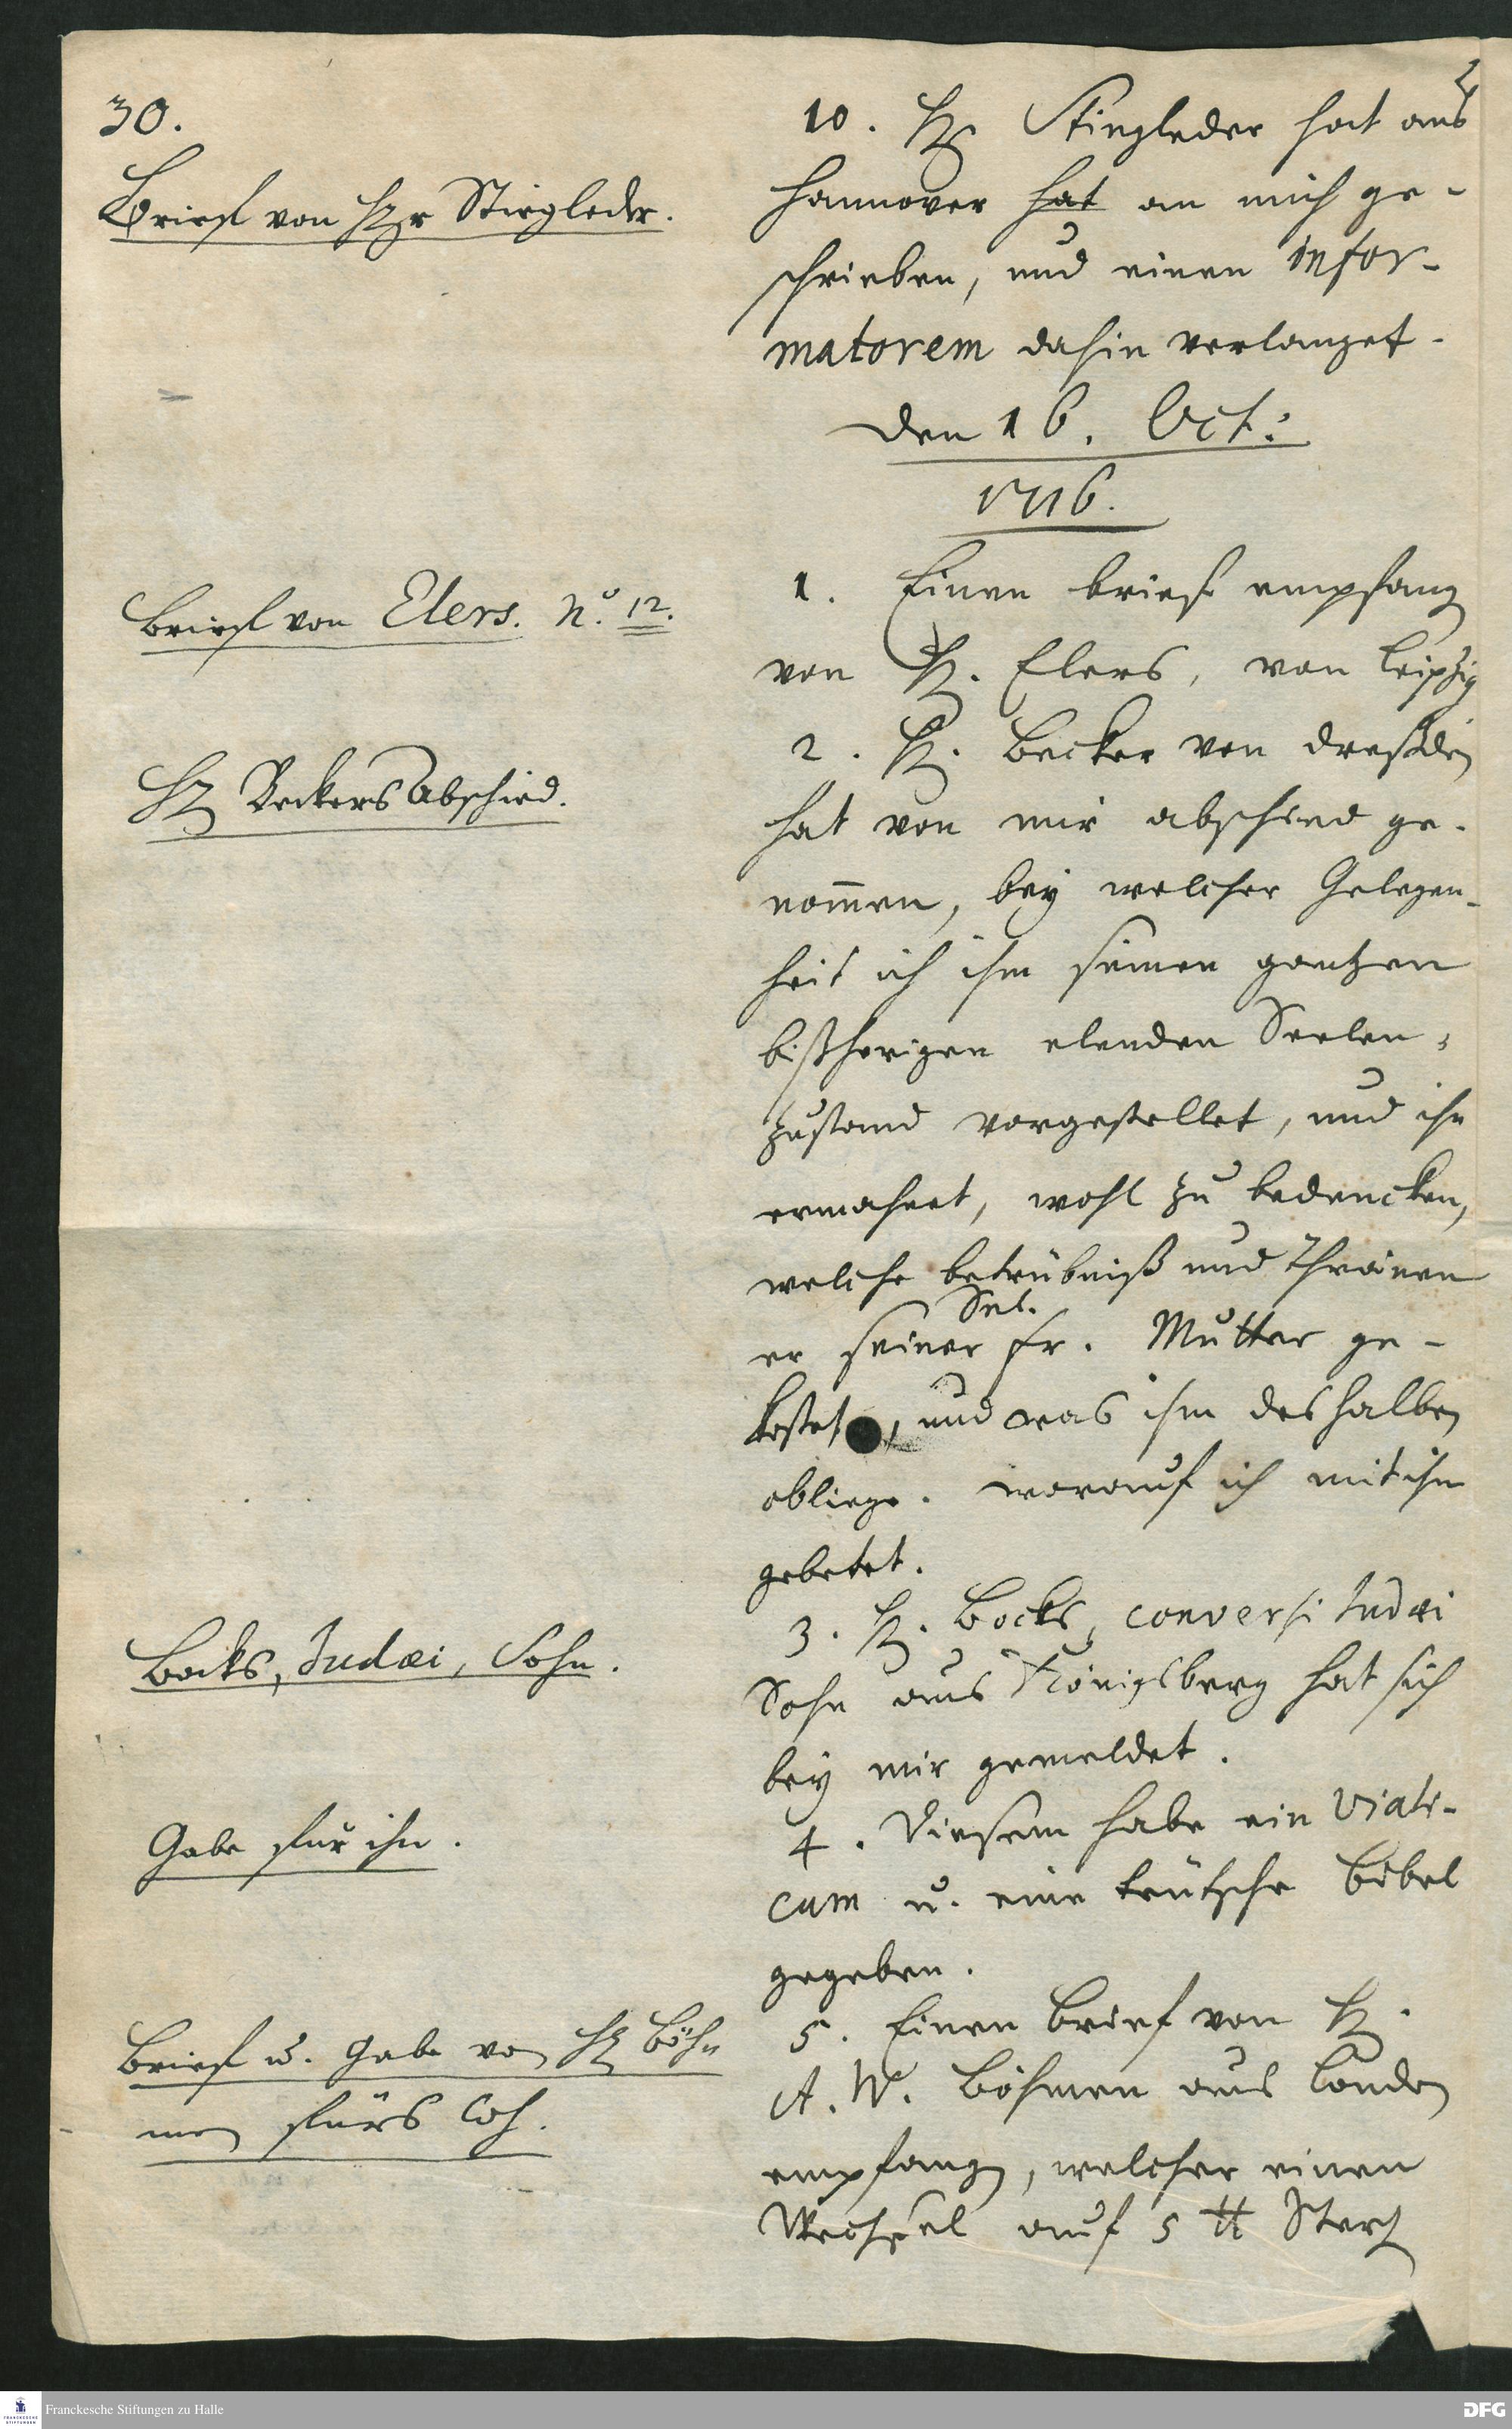 30.
Brieff von Hr Stiegleder.
Brieff von Elers. N.º 12.
Hr Beckers Abschied.
Bocks, Judæi, Sohn.
Gabe für ihn.
Brieff u. Gabe von Hr Böh
men fürs Coh.
10. Hr. Stiegleder hat aus
Hannover hat an mich ge-
schrieben, und einen infor-
matorem dahin verlanget.
Den 16. Oct:
1716.
1. Einen brieff empfang
von Hr. Elers, von Leipzig
2. Hr. Becker von dreßden
hat von mir abschied ge-
nom̅en, bey welcher Gelegen-
heit ich ihm seinen gantzen
bißherigen elenden Seelen-
zustand vorgestellet, und ihn
ermahnet, wohl zu bedencken,
welche betrübniß und Thränen
er seiner Sel. Fr. Mutter ge-
kostet, und was ihm deshalben
obliege. worauf ich mit ihm
gebetet.
3. Hr. Bocks, conversi Judæi
Sohn aus Königsberg hat sich
bey mir gemeldet.
4. Diesem habe ein Viati-
cum u. eine teütsche bibel
gegeben.
5. Einen Brief von Hr.
A. W. Böhmen aus Londen
empfangen, welcher einen
Wechsel auf 5 ℔ Sterl
Franckesche Stiftungen zu Halle
DFG